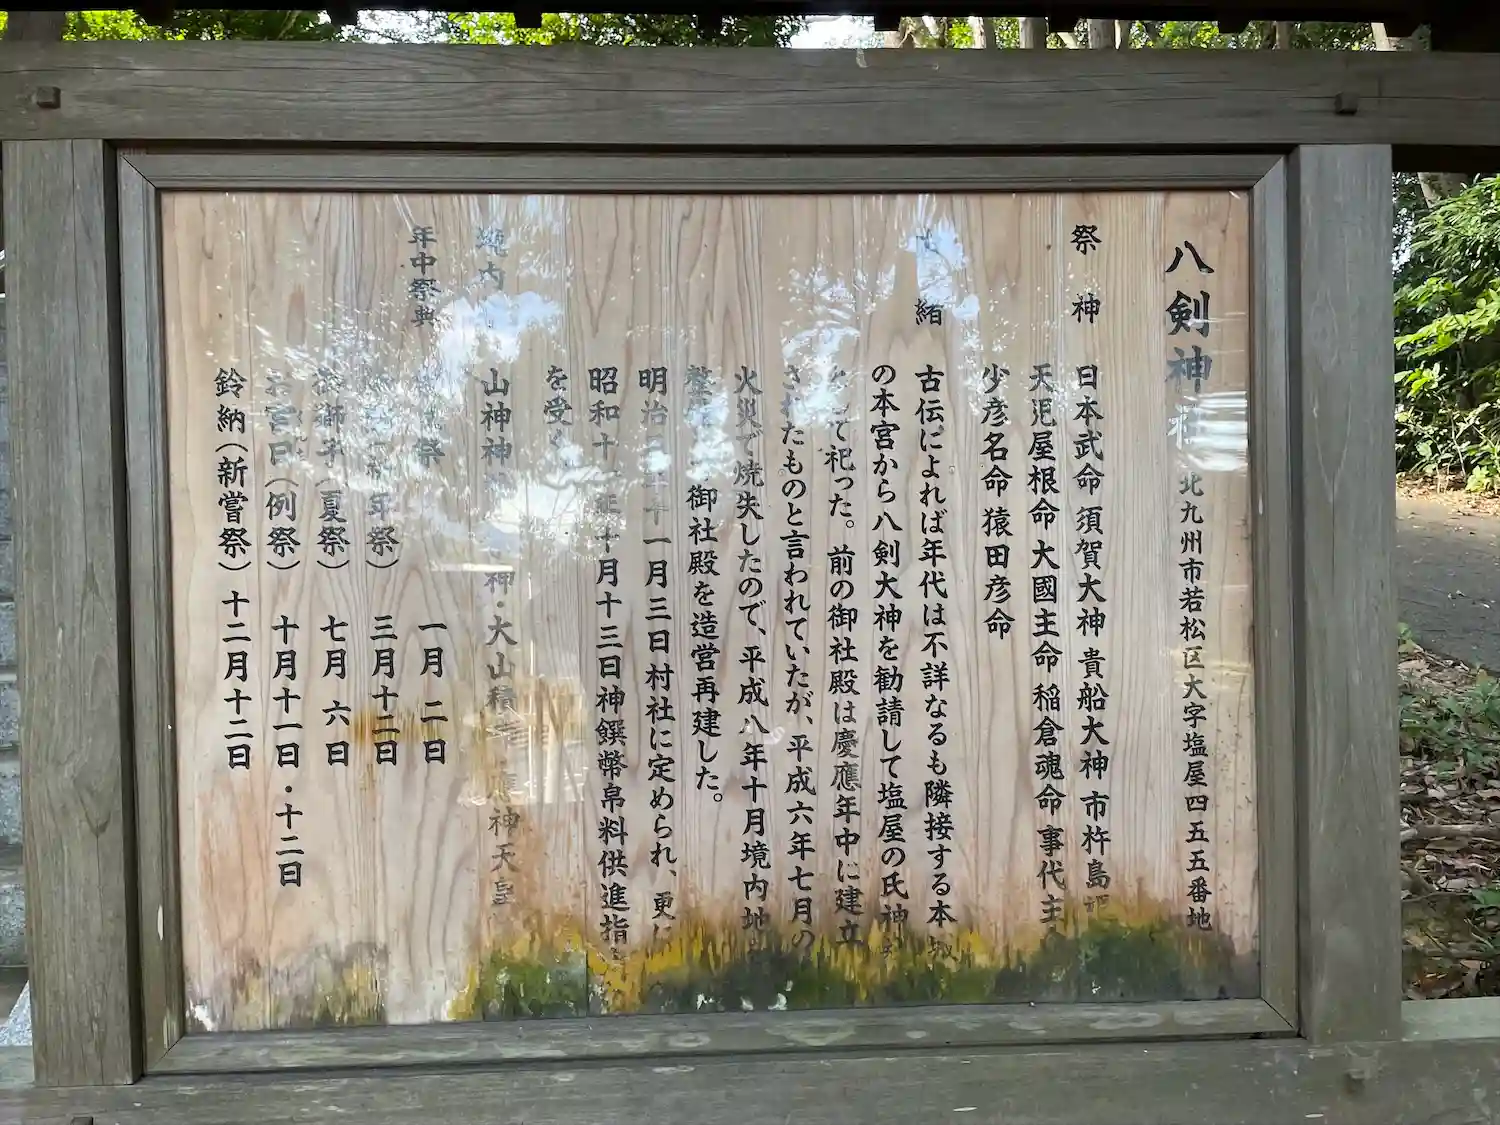 八剣神社 北九州市若松区大字塩屋四五五番地
祭神 日本武命 須賀大神 貴船大神 市杵島
天児屋根命 大國主命 稲倉魂命 事代主
少彦名命 猿田彦命
緒 古伝によれば年代は不詳なるも隣接する本城
の本宮から八剣大神を勧請して塩屋の氏神
て祀った。前の御社殿は慶應年中に建立
されたものと言われていたが、平成六年七月の
火災で焼失したので、平成八年十月境内地
御社殿を造営再建した。
明治 年十一月三日村社に定められ、更に
昭和十 年十月十三日神饌幣帛料供進指
を受
境内 山神神 神・大山積 應神天皇
年中祭典 祭 一月二日
年祭) 三月十二日
獅子(夏祭) 七月六日
宮日(例祭) 十月十一日・十二日
鈴納(新嘗祭) 十二月十二日